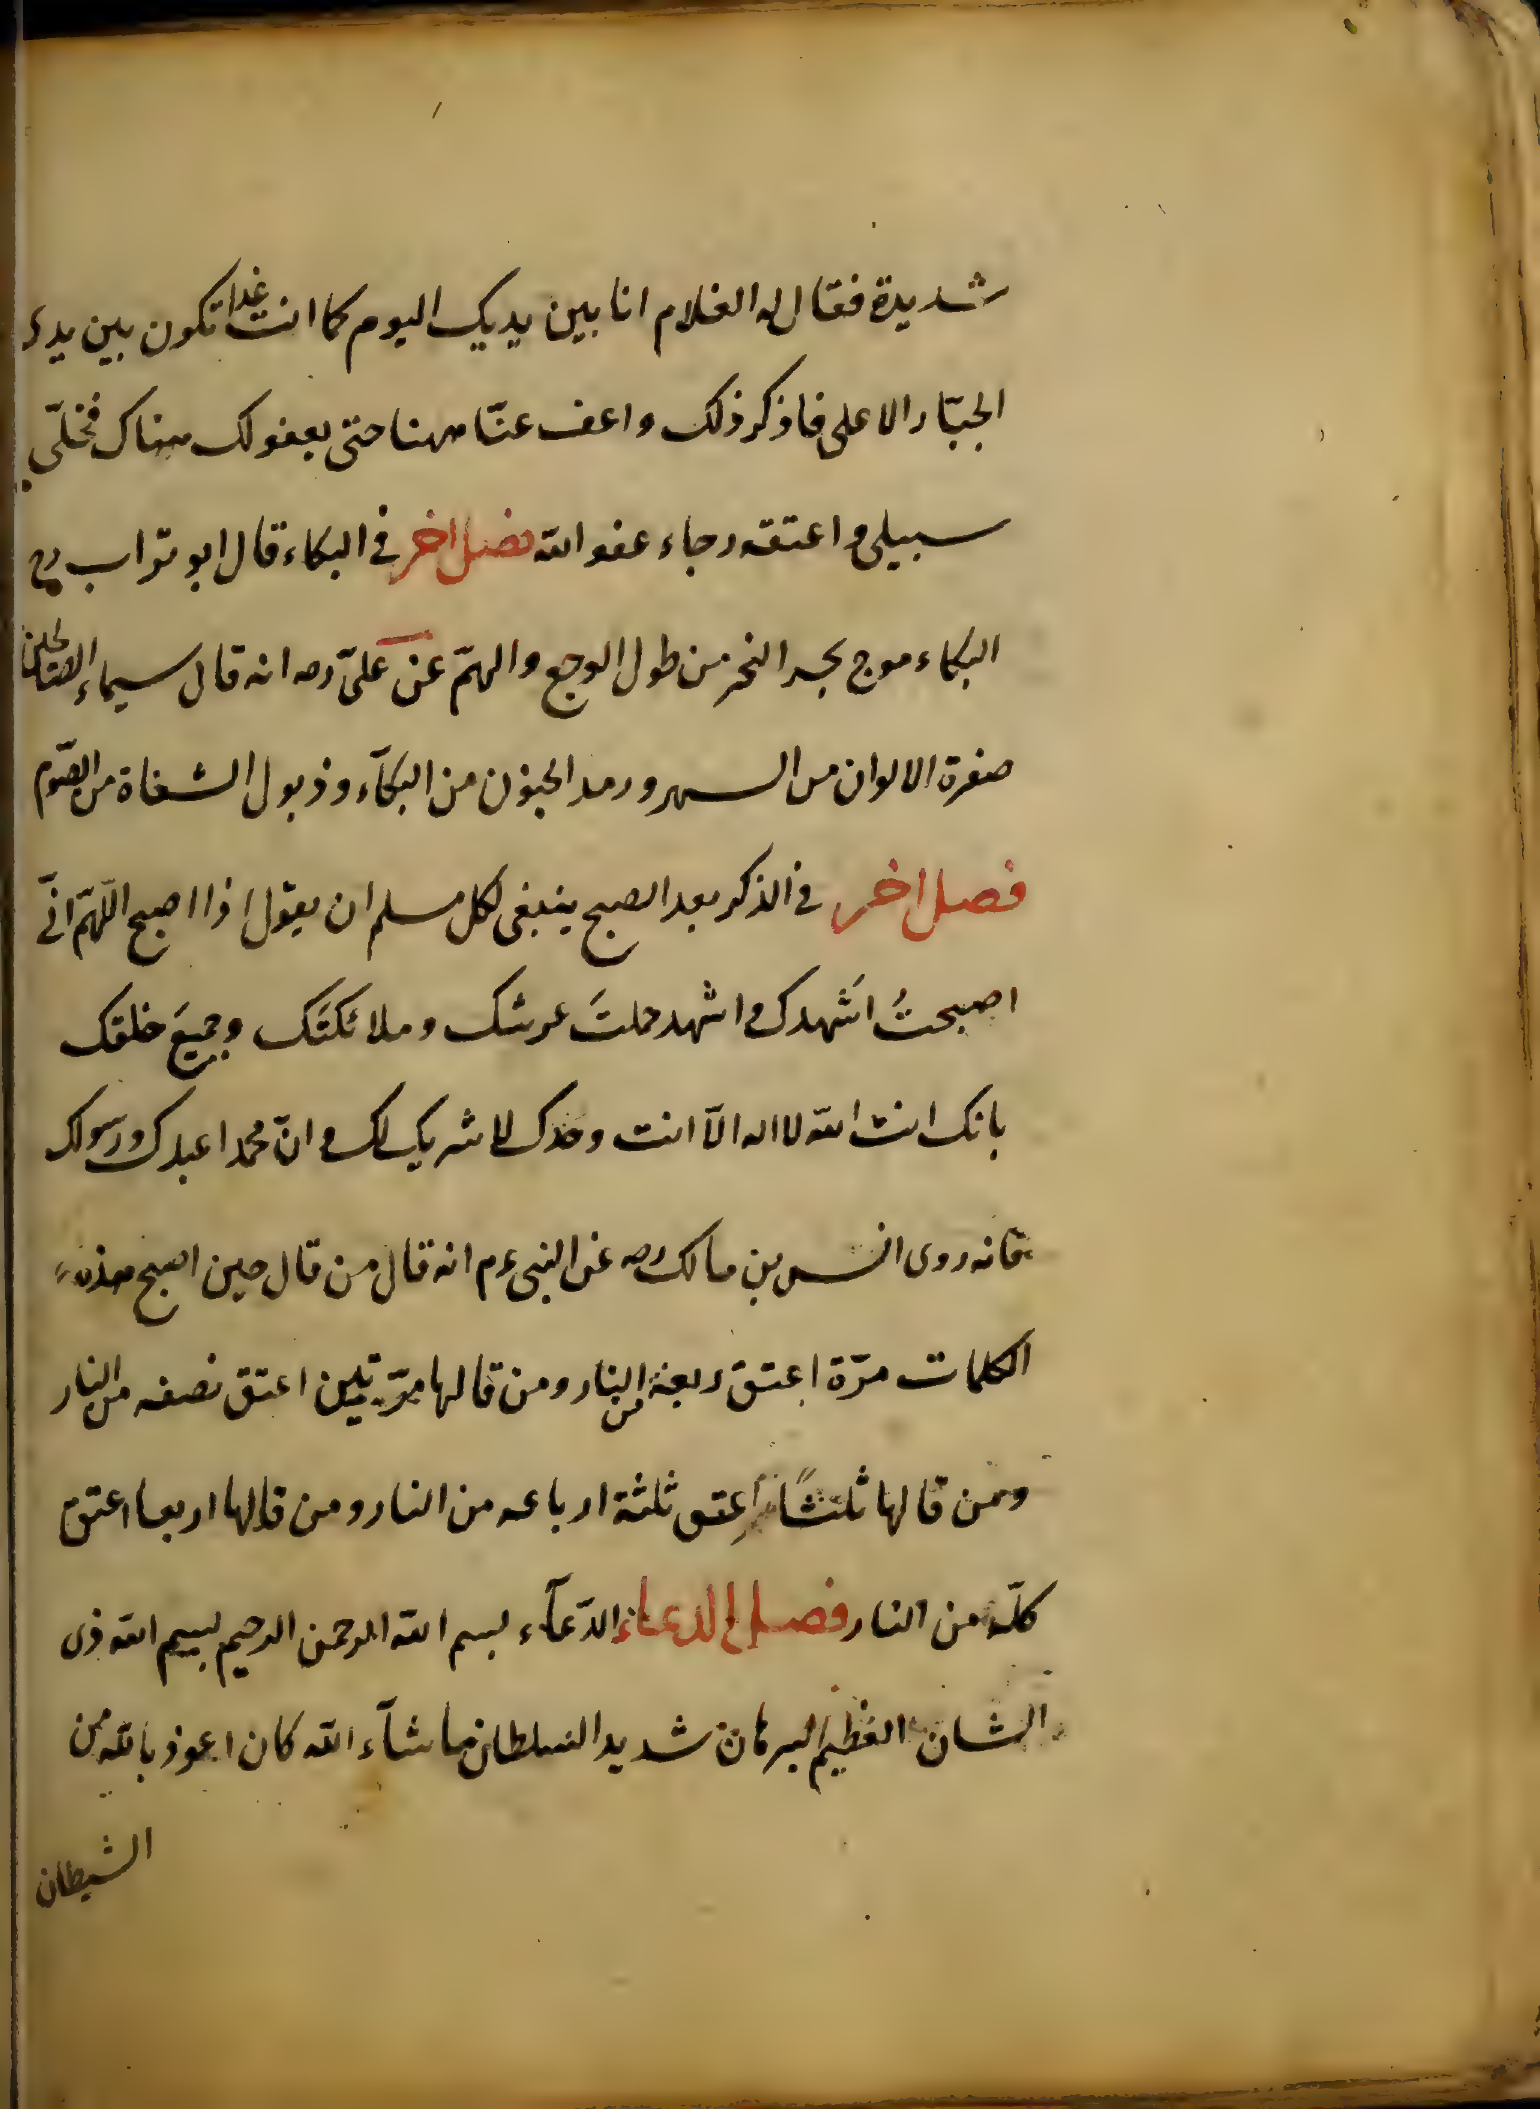 شديدة فقال له الغلام انا بين يديك اليوم كما انت غدا تكون بين يدى
الجبّار الاعلى فاذكر ذلك واعف عنّا ههنا حتى يعفو لك هناك فخلّى
سبيلى واعتقه رجاء عفو الله فصل اخر فى البكاء قال ابو تراب رح
البكاء موج بحر من طول الوجع والهمّ عن علىّ رضه انه قال سيماء الصالحين
صفرة الالوان من السهر ورمد الجفون من البكآء وذبول الشفاة من الصّوم
فصل اخر فى الذكر بعد الصبح ينبغى لكل مسلم ان يقول اذا اصبح اللّهمّ انّى
اصبحتُ اشهدك واشهد حملتَ عرشك وملائكتَك وجميعَ خلقك
بانك انت الله لا اله الّا انت وحدك لا شريك لك وانّ محمدا عبدك ورسولك
فانه روى انس بن مالك رضه عن النبى ءم انه قال من قال حين اصبح هذه
الكلمات مرّة اعتق ربعه من النار ومن قالها مرّتين اعتق نصفه من النار
ومن قالها ثلثًا اعتق ثلثة ارباعه من النار ومن قالها اربعا اعتق
كلّه من النار فصل فى الدعاء الدّعآء بسم الله الرحمن الرحيم بسم الله ذى
الشان العظيم البرهان شديد السلطان ماشآء الله كان اعوذ بالله من
الشيطان